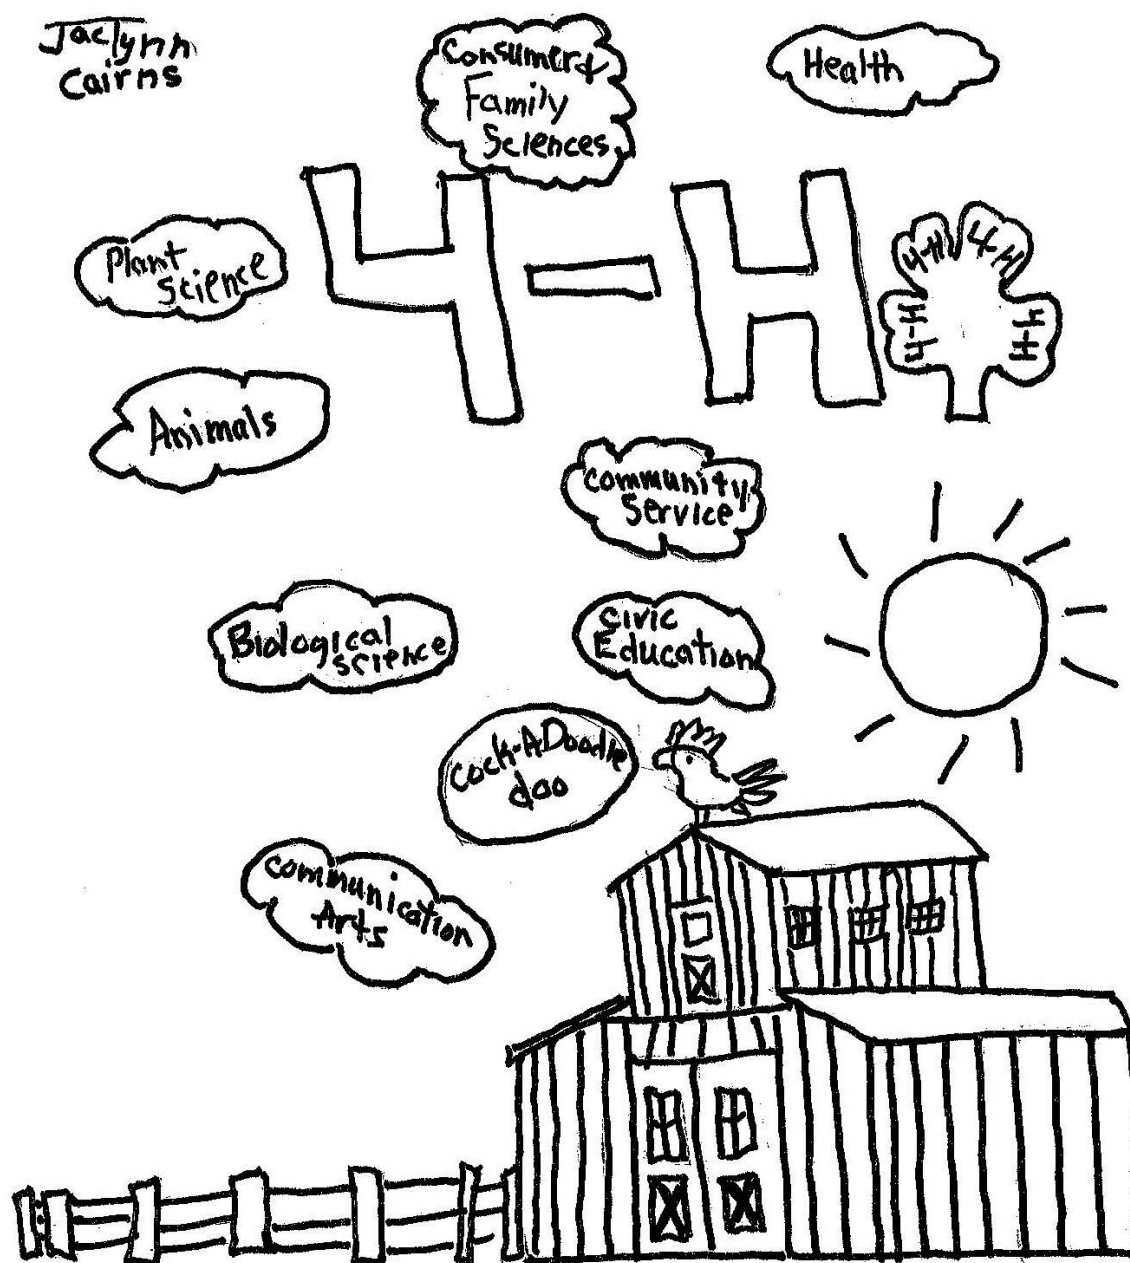 Jaclynn
Cairns
Consumer &
Family
Sciences
Health
4-H
Plant
Science
4-H
4-H
4-H
4-H
Animals
Community
Service
Biological
science
Civic
Education
Cock-A Doodle
doo
Communication
Arts